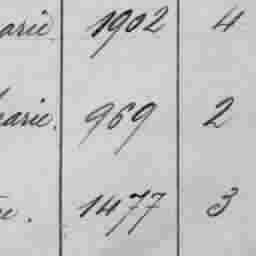 arie 1902 4
arie. 969 2
e. 1477 3